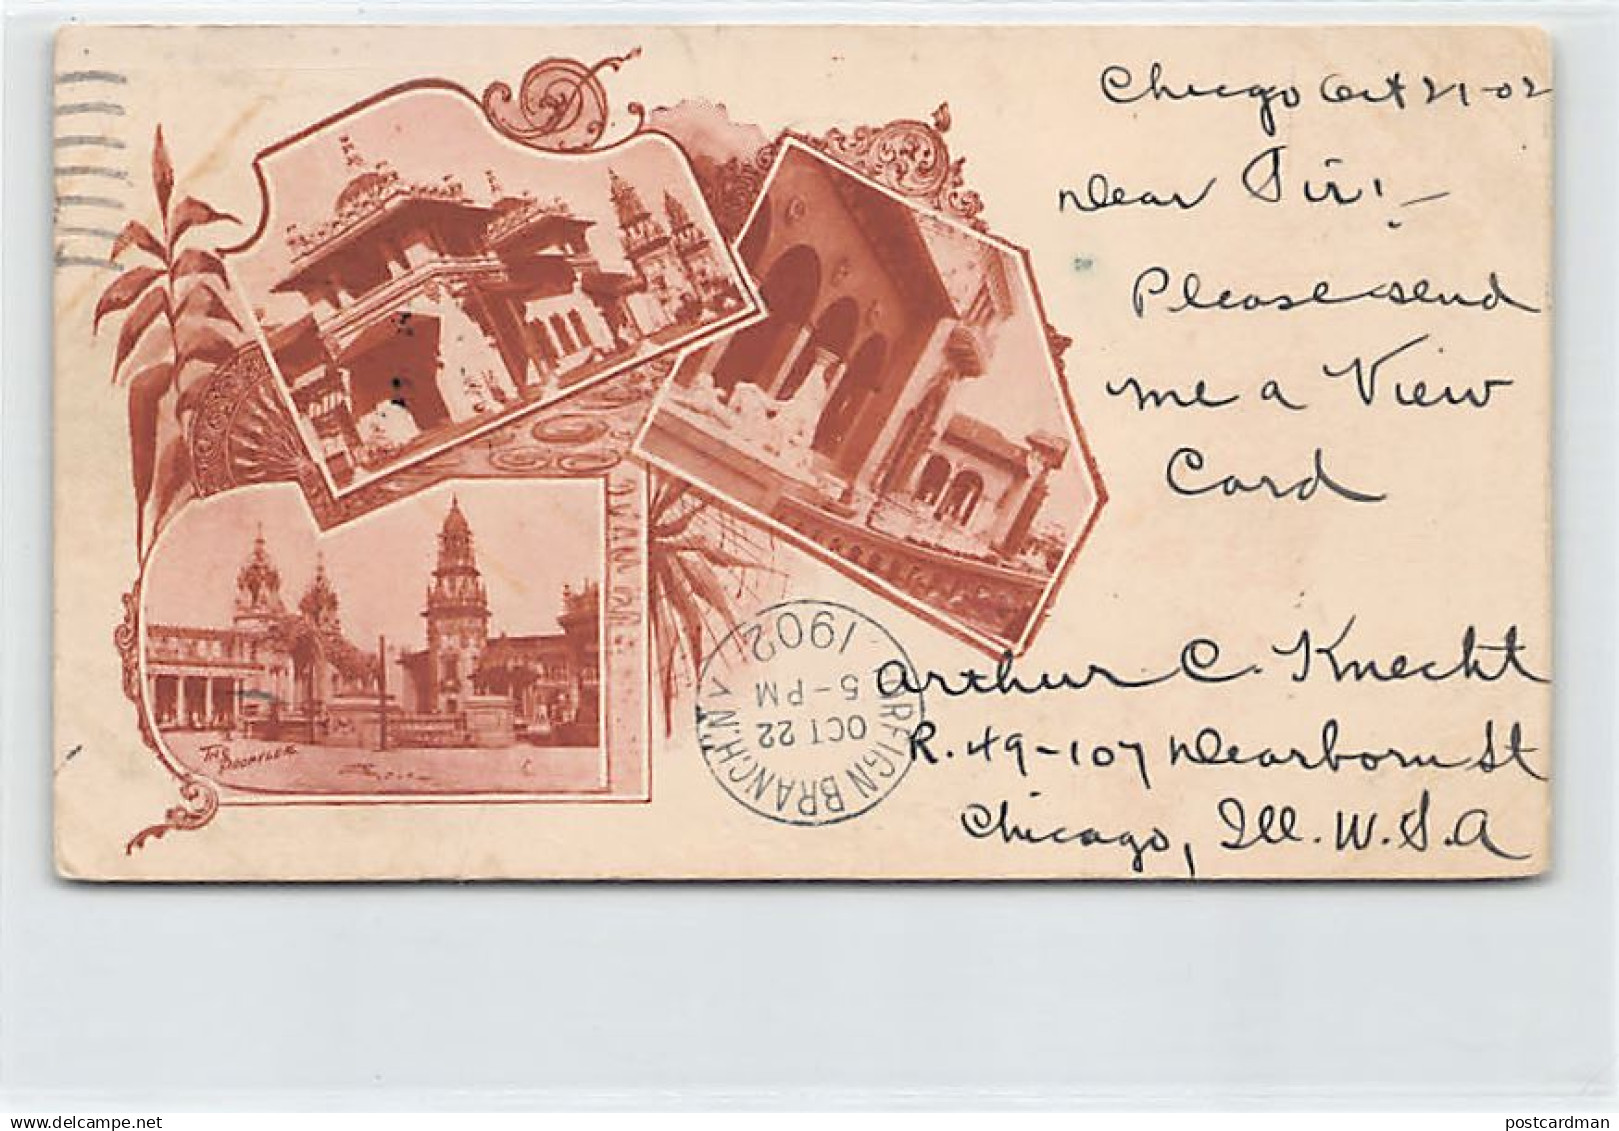 Chicgo Oct 21-02
Dear Sir! -
Please send
me a View
Card
Arthur C. Knecht
R. 49-107 Dearborn St
Chicago, Ill. U.S.A
FOREIGN BRANCH N.Y.
OCT 22
5-PM
1902
postcardman